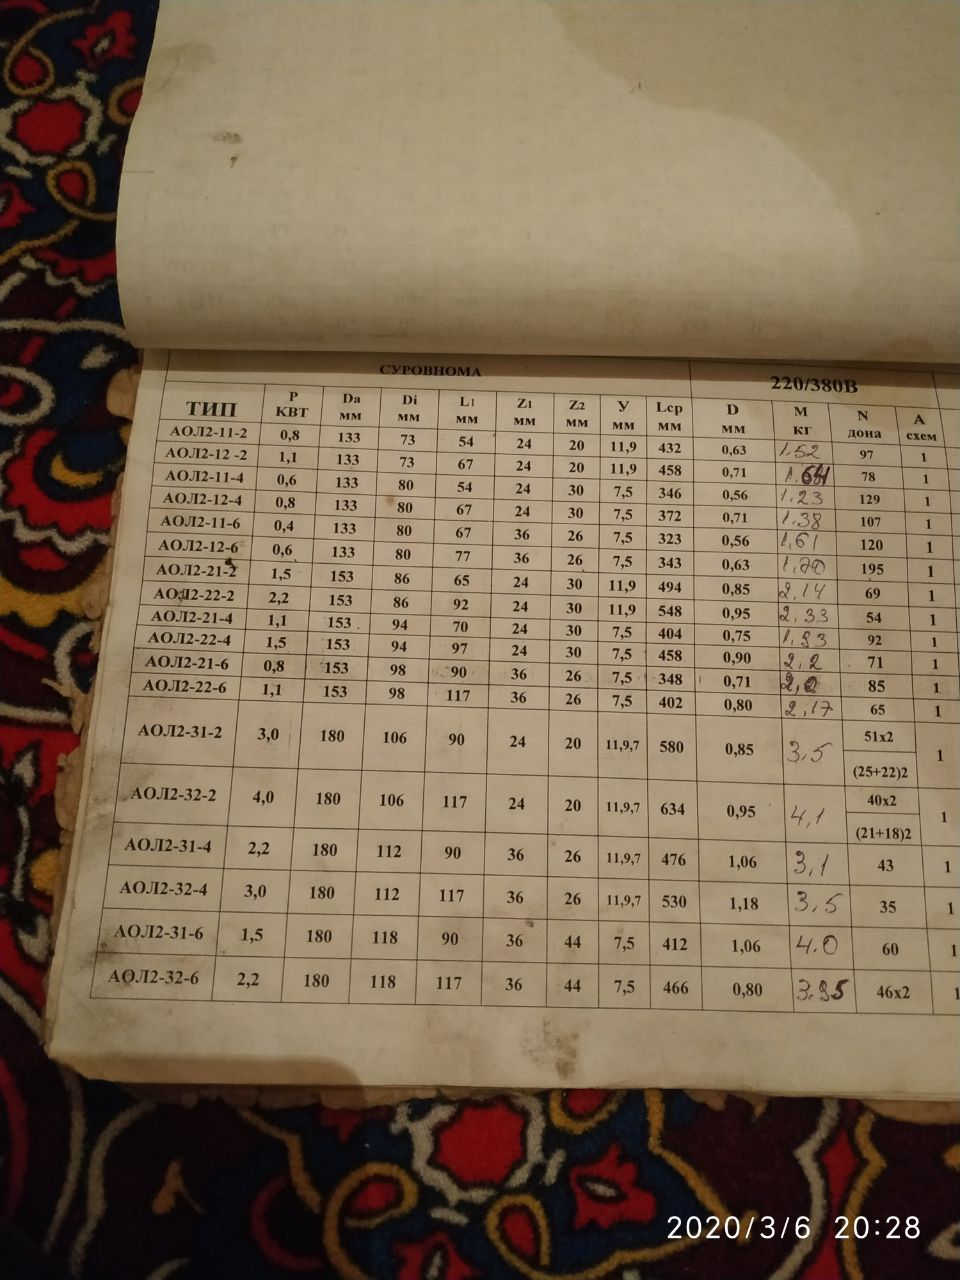 СУРОВНОМА 220/380В
ТИП Р КВТ Da мм Di мм L1 мм Z1 мм Z2 мм У мм Lcp мм D мм М кг N дона А схем
АОЛ2-11-2 0,8 133 73 54 24 20 11,9 432 0,63 1.52 97 1
АОЛ2-12 -2 1,1 133 73 67 24 20 11,9 458 0,71 1.64 78 1
АОЛ2-11-4 0,6 133 80 54 24 30 7,5 346 0,56 1.23 129 1
АОЛ2-12-4 0,8 133 80 67 24 30 7,5 372 0,71 1.38 107 1
АОЛ2-11-6 0,4 133 80 67 36 26 7,5 323 0,56 1.61 120 1
АОЛ2-12-6 0,6 133 80 77 36 26 7,5 343 0,63 1.70 195 1
АОЛ2-21-2 1,5 153 86 65 24 30 11,9 494 0,85 2.14 69 1
АОЛ2-22-2 2,2 153 86 92 24 30 11,9 548 0,95 2.33 54 1
АОЛ2-21-4 1,1 153 94 70 24 30 7,5 404 0,75 1.93 92 1
АОЛ2-22-4 1,5 153 94 97 24 30 7,5 458 0,90 2,2 71 1
АОЛ2-21-6 0,8 153 98 90 36 26 7,5 348 0,71 2,0 85 1
АОЛ2-22-6 1,1 153 98 117 36 26 7,5 402 0,80 2,17 65 1
АОЛ2-31-2 3,0 180 106 90 24 20 11,9,7 580 0,85 3.5 51х2 1
(25+22)2
АОЛ2-32-2 4,0 180 106 117 24 20 11,9,7 634 0,95 4,1 40х2 1
(21+18)2
АОЛ2-31-4 2,2 180 112 90 36 26 11,9,7 476 1,06 3,1 43 1
АОЛ2-32-4 3,0 180 112 117 36 26 11,9,7 530 1,18 3,5 35 1
АОЛ2-31-6 1,5 180 118 90 36 44 7,5 412 1,06 4.0 60 1
АОЛ2-32-6 2,2 180 118 117 36 44 7,5 466 0,80 3.95 46х2 1
2020/3/6 20:28